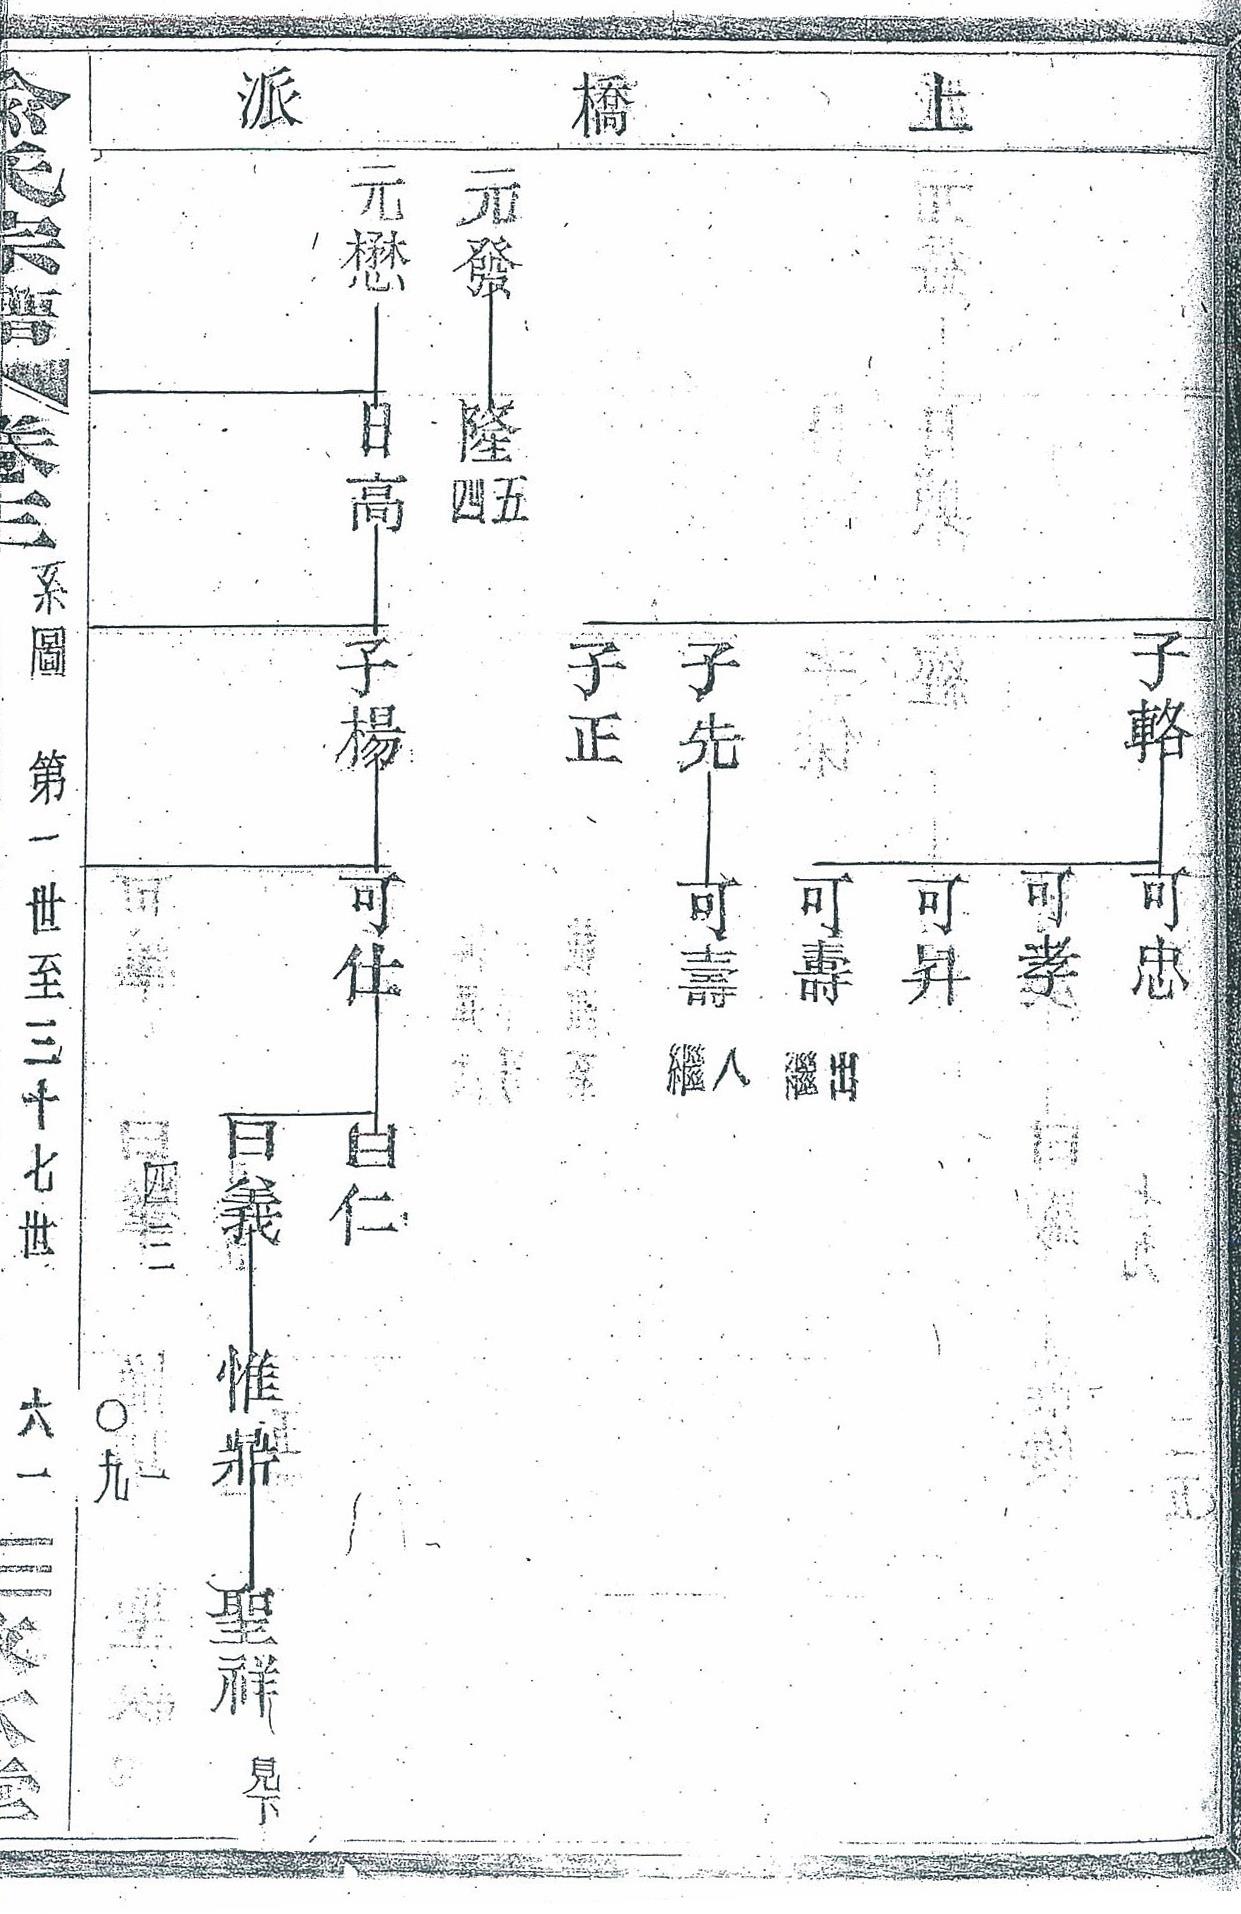 上橋派
子輅
可忠
可孝
可昇
可壽
出繼
子先
可壽
人繼
子正
元發
隆
五四
元懋
日高
子楊
可仕
曰仁
曰義
惟鼎
聖祥
見下
四三一
〇九
俞氏宗譜
卷三
系圖
第一世至三十七世
六一